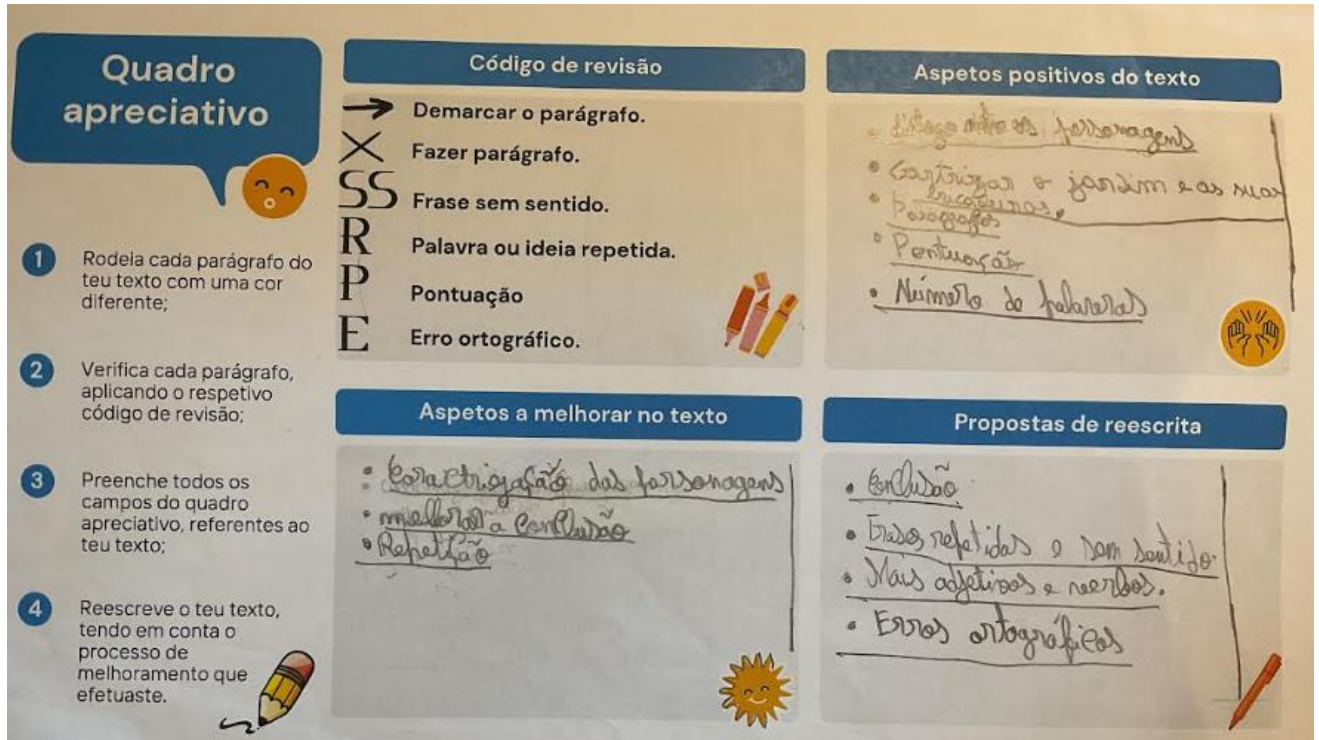 Quadro
apreciativo
1 Rodeia cada parágrafo do
teu texto com uma cor
diferente;
2 Verifica cada parágrafo,
aplicando o respetivo
código de revisão;
3 Preenche todos os
campos do quadro
apreciativo, referentes ao
teu texto;
4 Reescreve o teu texto,
tendo em conta o
processo de
melhoramento que
efetuaste.
Código de revisão
→ Demarcar o parágrafo.
X Fazer parágrafo.
SS Frase sem sentido.
R Palavra ou ideia repetida.
P Pontuação
E Erro ortográfico.
Aspetos positivos do texto
• personagens
• o jardim e as suas
• Parágrafos
• Pontuação
• Número de palavras
Aspetos a melhorar no texto
• das personagens
• a conclusão
Propostas de reescrita
• Conclusão
• Frases repetidas e sem sentido.
• Mais adjetivos e verbos.
• Erros ortográficos